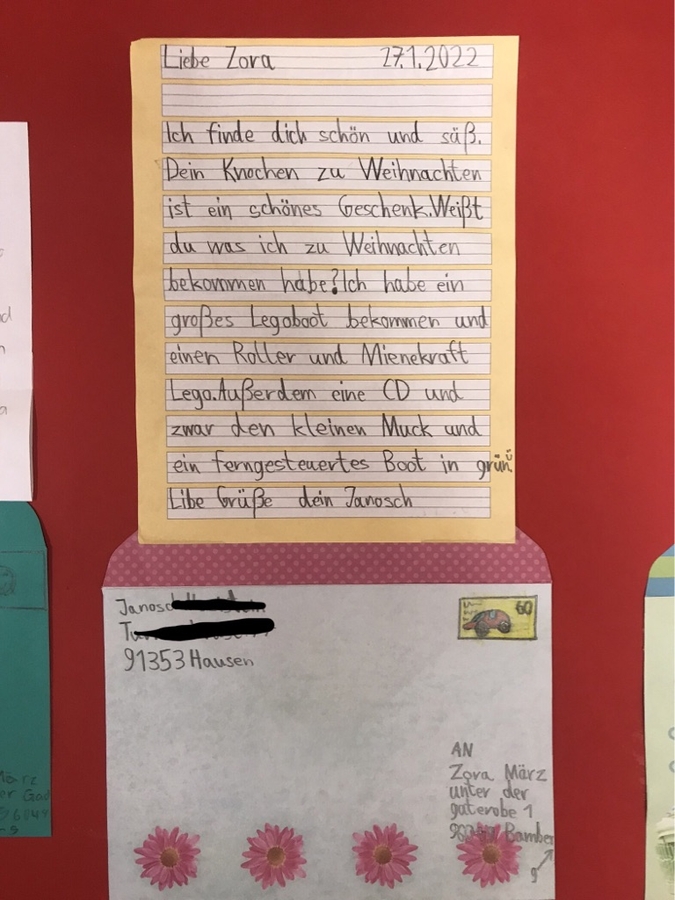 Liebe Zora 27.1.2022
Ich finde dich schön und säß.
Dein Knochen zu Weihnachten
ist ein schönes Geschenk.Weißt
du was ich zu Weihnachten
bekommen habe?Ich habe ein
großes Legoboot bekommen und
einen Roller und Mienekraft
Lego.Außerdem eine CD und
zwar den kleinen Muck und
ein ferngesteuertes Boot in grün.
Libe Grüße dein Janosch
Janosc
91353 Hausen
60
AN
Zora März
unter der
guterobe 1
Bamberg